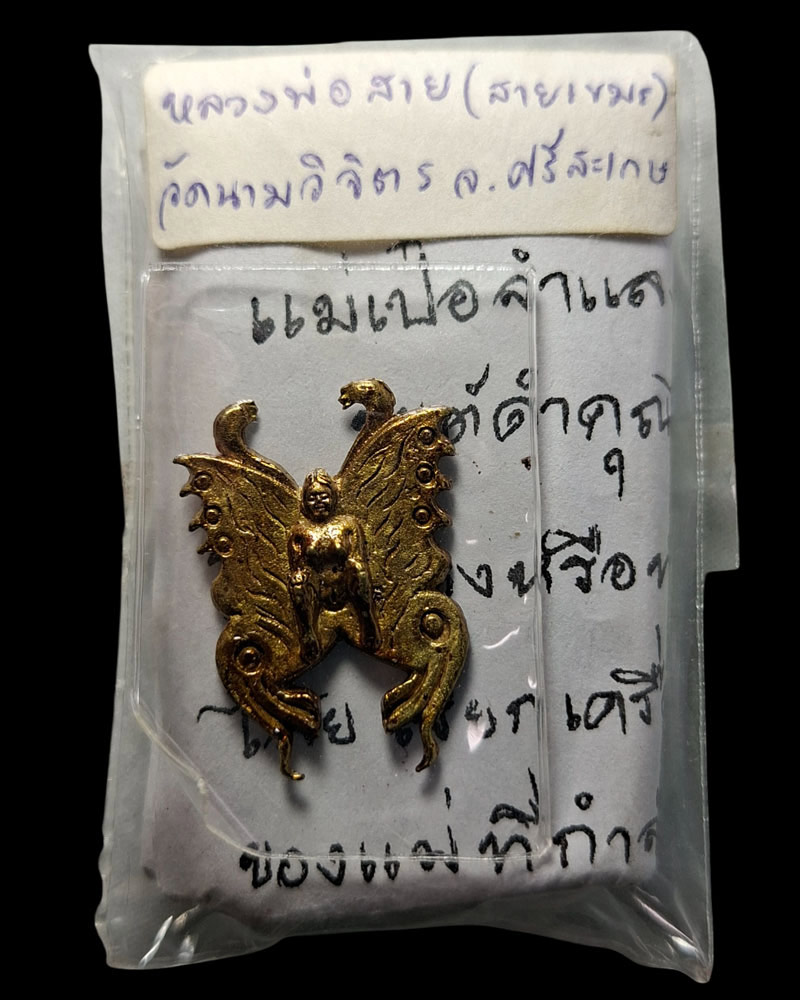 หลวงพ่อสาย (สายเขมร)
วัดนามวิจิตร จ.ศรีสะเกษ
แม่เป๋อลำแล
ต์ดำคุณ
งหรือ
เครื่
ของแม่ที่กำ